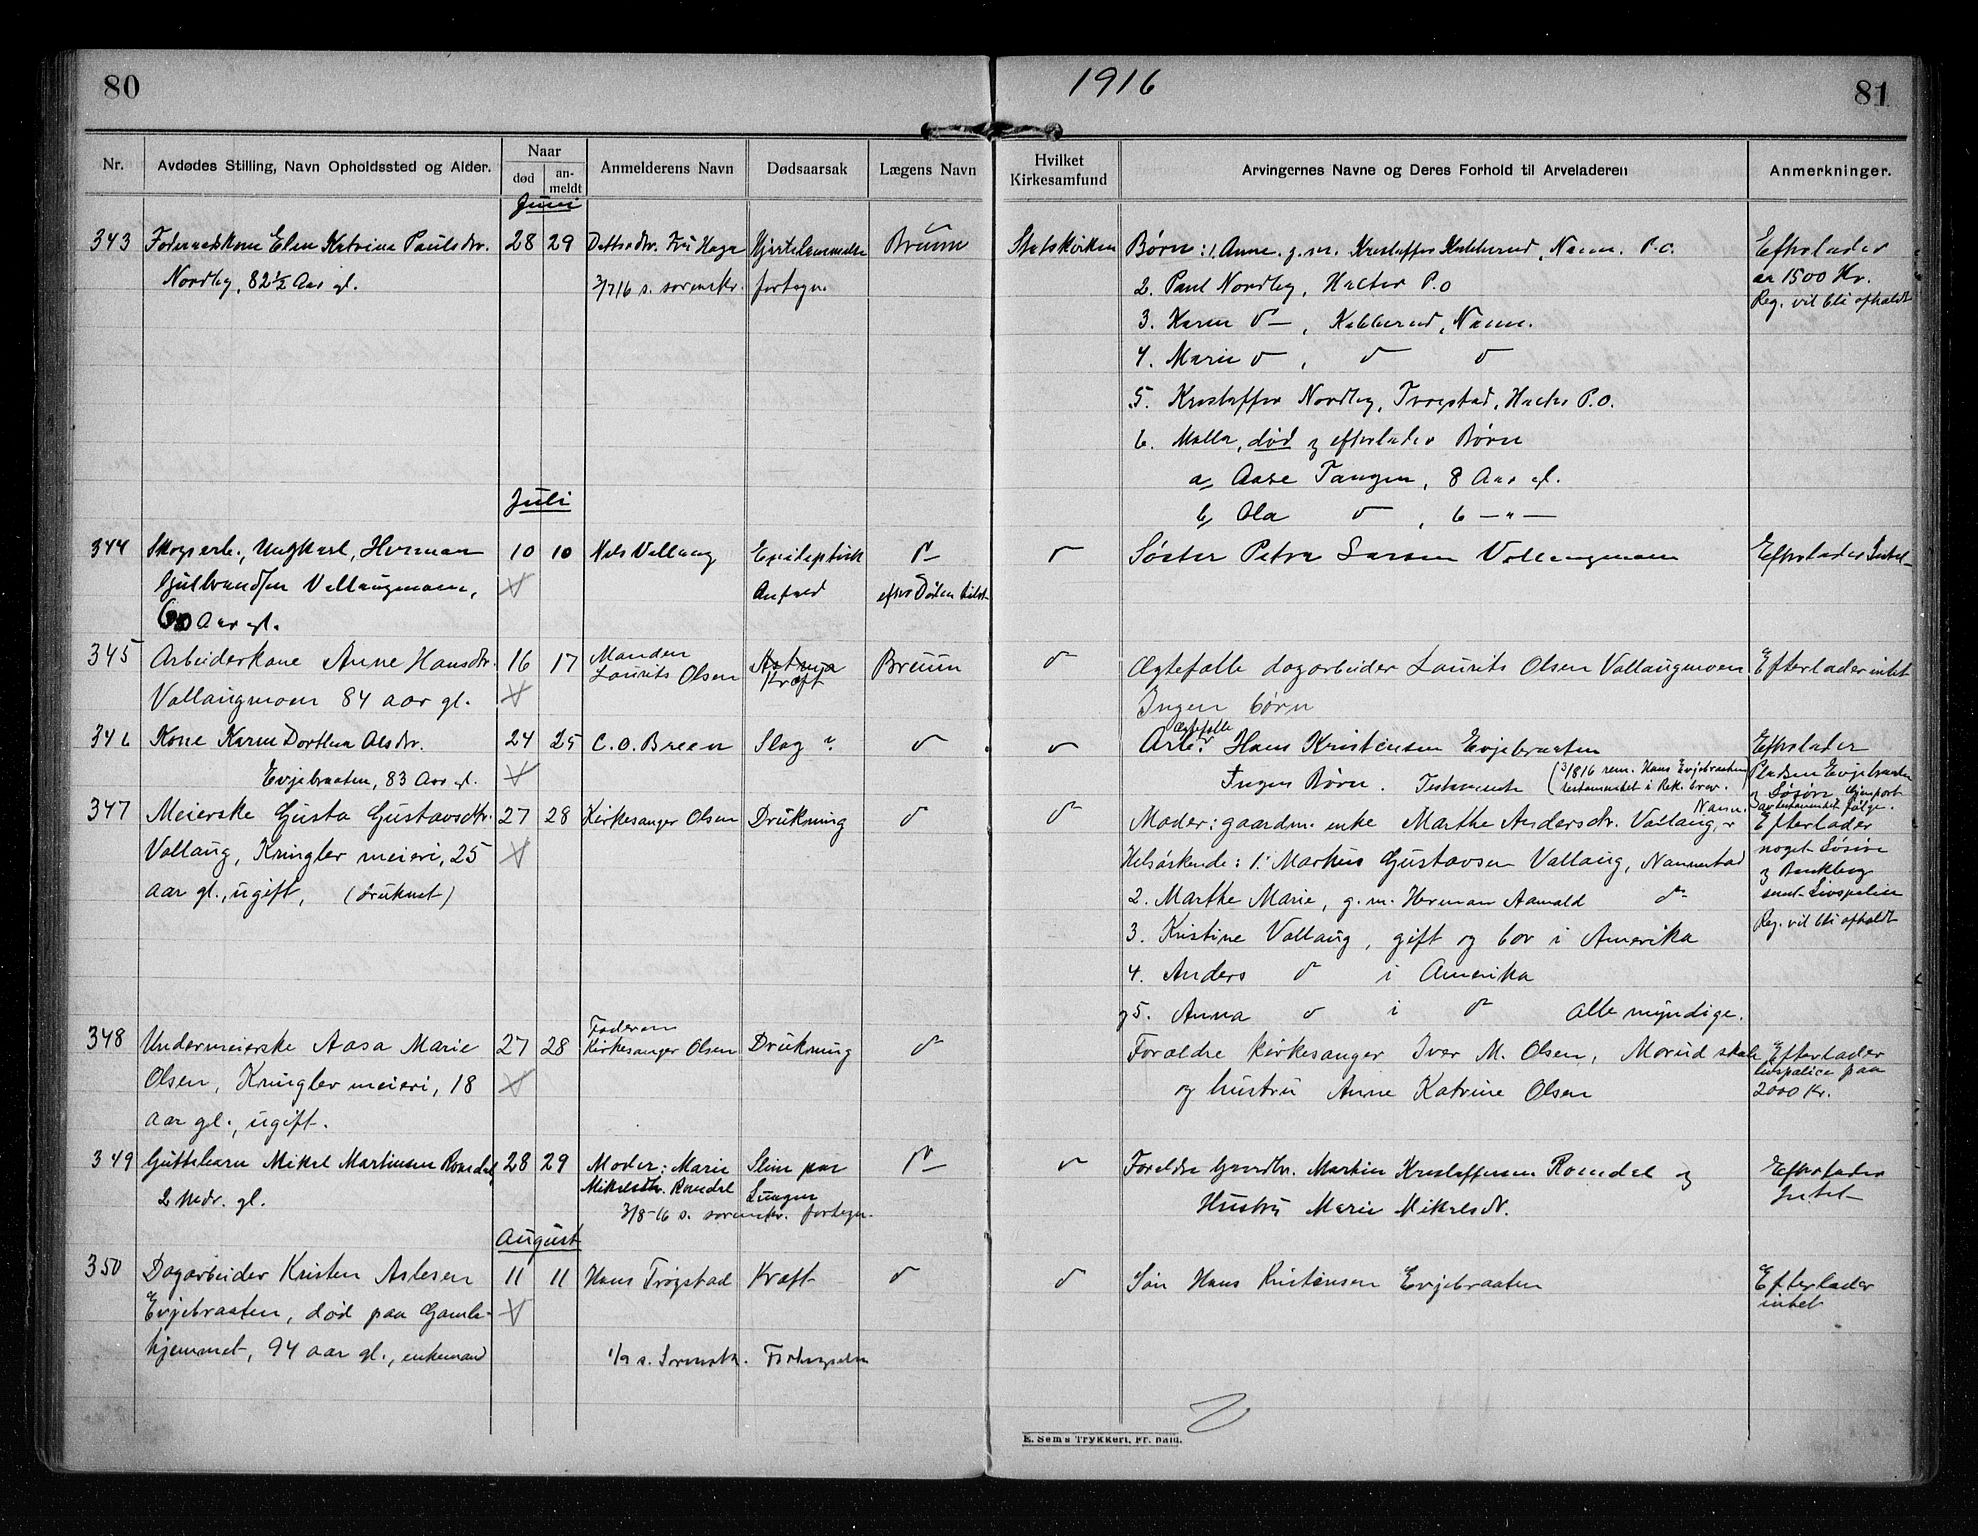 80
1916
81
Nr.
Avdødes Stilling, Navn Opholdssted og Alder.
Naar
død
an-
meldt
Anmelderens Navn
Dødsaarsak
Lægens Navn
Hvilket
Kirkesamfund
Arvingernes Navne og Deres Forhold til Arveladeren
Anmerkninger.
Juni
343 Foderaadskone Elen Katrine Paulsdtr. 28 29 Datterdtr. Fru Haga Bruun Statskirken Børn: 1. Anne g. m. Kristoffer Kabberud, Nann. P.O. Efterlader
Nordby, 82½ Aar gl. 3/7 16 s. sorenskr. fortegn. 2. Paul Nordby, Hæter P.O ca 1500 Kr.
Reg. vil bli afholdt
3. Karen d—, Kabberud, Nann.
4. Marie d , d d
5. Kristoffer Nordby, Trøgstad, Hæter P.O.
6. død og efterlader Børn
a, Aase Tangen, 8 Aar gl.
b, Ola d , 6 — " —
Juli
344 Skogsarb., Ungkarl, Herman 10 10 Nels Vallaug Epileptisk d— d Søster Petra Larsen Vallaugmoen Efterlader Intet
Gulbrandsen Vallaugmoen, Anfald efter Døden tilst
60 Aar gl.
345 Arbeiderkone Anne Hansdtr. 16 17 Manden Astma Bruun d Ægtefælle dagarbeider Laurits Olsen Vallaugmoen Efterlader intet
Laurits Olsen Kræft
Vallaugmoen 84 aar gl. Ingen børn
346 Kone Karen Dorthea Olsdtr. 24 25 C. O. Breen Slag d d Ægtefælle Hans Kristensen Evjebraaten Efterlader
Evjebraaten, 83 Aar gl. Ingen Børn. Testamente (3/8 16 rem. Hans Evjebraaten Pladsen Evjebraaten
testamentet i Rek. brev. og Løsøre Gjenpart
av testamentet følge.
347 Meierske Gusta Gustavsdtr. 27 28 Kirkesanger Olsen Drukning d d Moder: gaardm. enke Marthe Andersdtr. Vallaug, Nann. Efterlader
Vallaug, Kringler meieri, 25 Helsøskende: 1. Markus Gustavsen Vallaug, Nannestad noget Løsøre
og Bankbog
aar gl., ugift, (druknet) 2. Marthe Marie, g. m. Herman Aamold d samt Livspolice
3. Kristine Vallaug, gift og bor i Amerika Reg. vil bli afholdt
4. Anders d i Amerika
og 5. Anna d i d alle myndige.
348 Undermeierske Aasa Marie 27 28 Faderen Drukning d Forældre kirkesanger Iver M. Olsen, Morud skole Efterlader
Kirkesanger Olsen livspolice paa
Olsen, Kringler meieri, 18 og hustru Anne Katrine Olsen 2000 Kr.
aar gl., ugift.
349 Guttebarn Mikel Martinsen Romdal 28 29 Moder: Marie Slim paa d— d Forældre Gaardbr. Martin Kristoffersen Romdal og Efterlader
2 Mdr. gl. Mikelsdtr. Romdal Lungen Hustru Marie Mikelsdtr. Intet
3/8-16 s. sorenskr. fortegn.
August
350 Dagarbeider Kristen Aslesen 11 11 Hans Trøgstad Kræft d d Søn Hans Kristensen Evjebraaten Efterlader
Evjebraaten, død paa Gamle- intet
hjemmet, 94 aar gl., enkemand 1/9 s. Sorenskr. Fortegnelse
E. Sem's Trykkeri, Fr.hald.